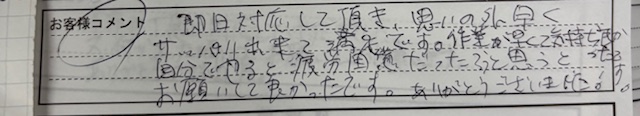 お客様コメント
即日対応して頂き、思いの外早く
出来て満足です。作業が早くて気持ち
自分でやると疲労困憊だったろうと思うと
お願いして良かったです。ありがとうございました。